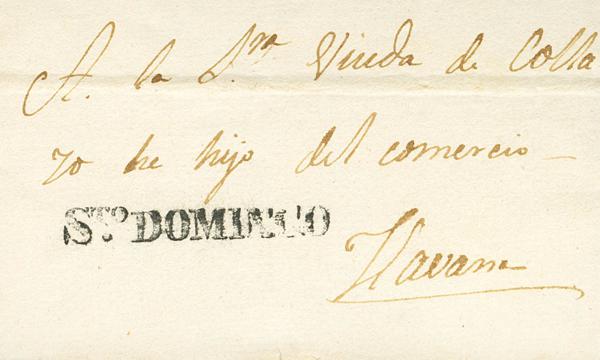 A. la S.ra Viuda de Colla
zo he hijo del comercio
STO DOMINGO
Havana